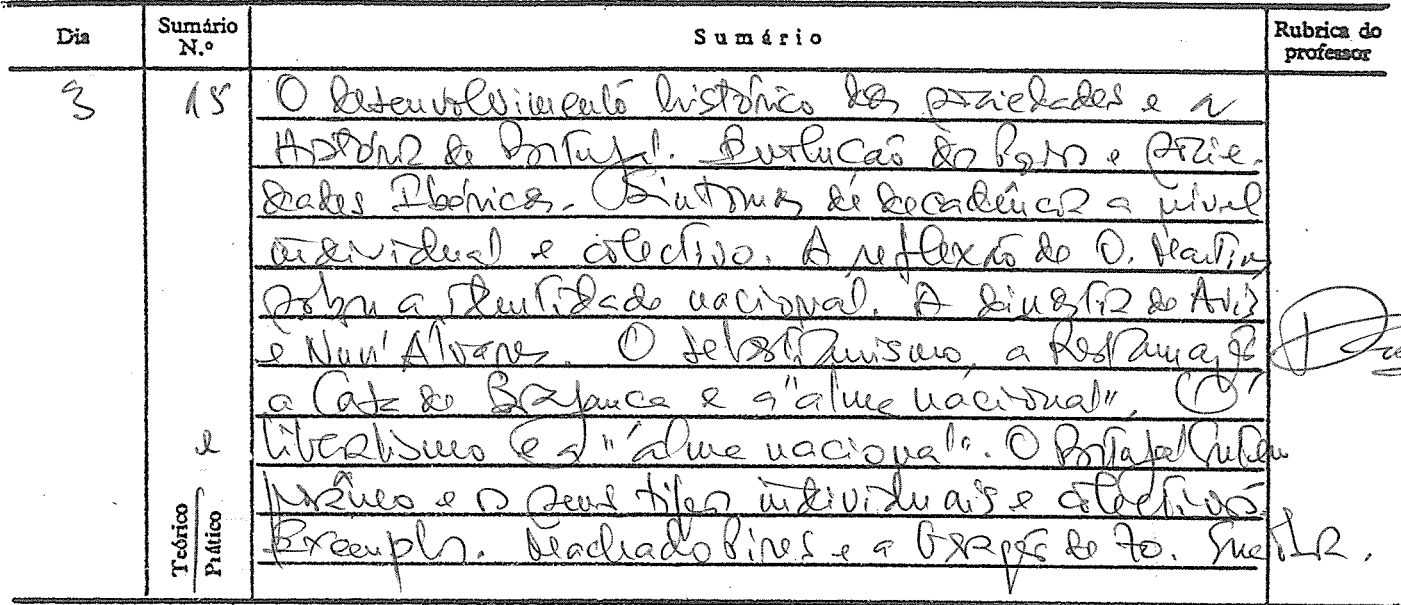 Dia
Sumário N.º
Sumário
Rubrica do professor
3
15
O desenvolvimento histórico das sociedades e a
História de Portugal. Evolução dos Povos e socie-
dades Ibéricas. Sintomas de decadência a nível
individual e colectivo. A reflexão de O. Martins
sobre a identidade nacional. A dinastia de Avis
e Nun'Álvares. O Sebastianismo, a Restauração
a Casa de Bragança e a "alma nacional". O
liberalismo e a "alma nacional". O Portugal Contem
porâneo e os seus tipos individuais e colectivos.
Exemplos. Machado Pires e a Geração de 70.
e
Teórico
Prático